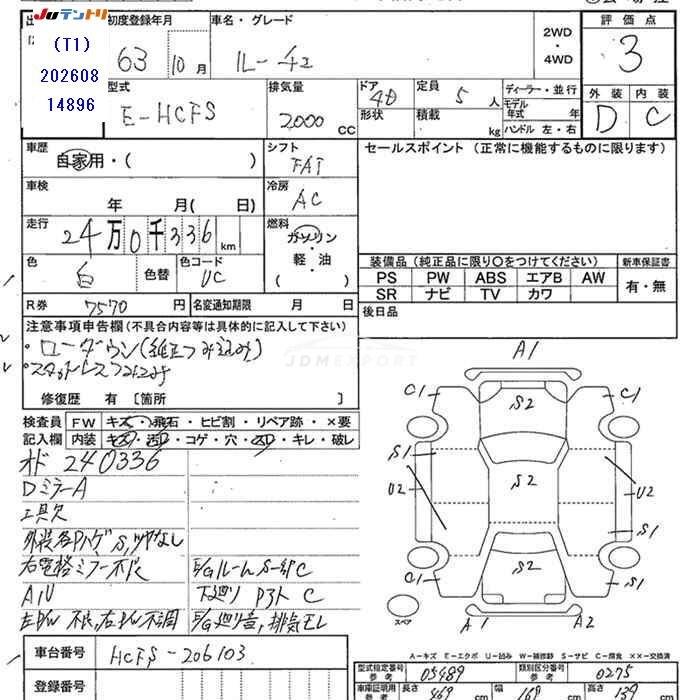 JUテントリ
初度登録年月
車名・グレード
評価点
(T1)
202608
14896
63 10月
ルーチェ
2WD
・
4WD
3
型式
排気量
ドア
定員
ディーラー・並行
外装
内装
E-HCFS
2000 CC
4D
5 人
モデル年式 年
D
C
形状
積載 kg
ハンドル 左・右
車歴
シフト
セールスポイント (正常に機能するものに限ります)
自家用・( )
FAT
車検
冷房
年 月( 日)
AC
走行
燃料
24万0千336 km
ガソリン
・
軽・油
( )
色
色替
色コード
白
UC
装備品 (純正品に限り○をつけてください)
新車保証書
PS PW ABS エアB AW
有・無
SR ナビ TV カワ
R券 7570 円
名変通知期限 月 日
後日品
注意事項申告欄(不具合内容等は具体的に記入して下さい)
・ローダウン(純正つみ込み)
・スタットレスつみこみ
JDMEXPORT
修復歴 有〔箇所 〕
検査員
記入欄
FW キズ・飛石・ヒビ割・リペア跡・×要
内装 キズ・汚レ・コゲ・穴・スレ・キレ・破レ
オド 240336
DミラーA
工具欠
外装各PハゲS,ツヤなし
右電格ミラー不良
E/GルームS-部C
AIU
下廻り P3ト C
左PW不良,右PW不調
E/G廻り音,排気モレ
A1
C1
S2
C1
S1
U2
S2
U2
S1
C1
S2
S1
A1
A2
スペア
A-キズ E-エクボ U-凹み W-補修跡 S-サビ C-腐食 XX-交換済
車台番号 HCFS-206103
登録番号
型式指定番号 参考 05489
類別区分番号 参考 0275
車庫証明用 参考
長さ 469 cm
幅 169 cm
高さ 139 cm